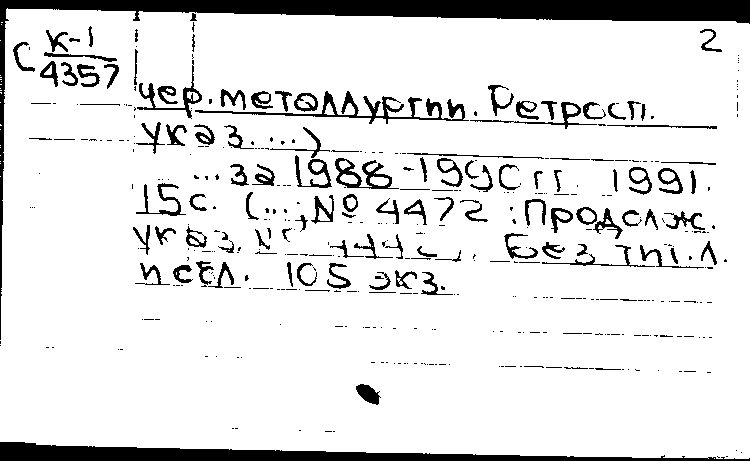 2
С К-1
4357
чер. металлургии. Ретросп.
указ. ...)
...за 1988-1990 гг 1991.
15 с. (...; № 4472 : Продолж.
указ. № Без тит. л.
и обл. 105 экз.